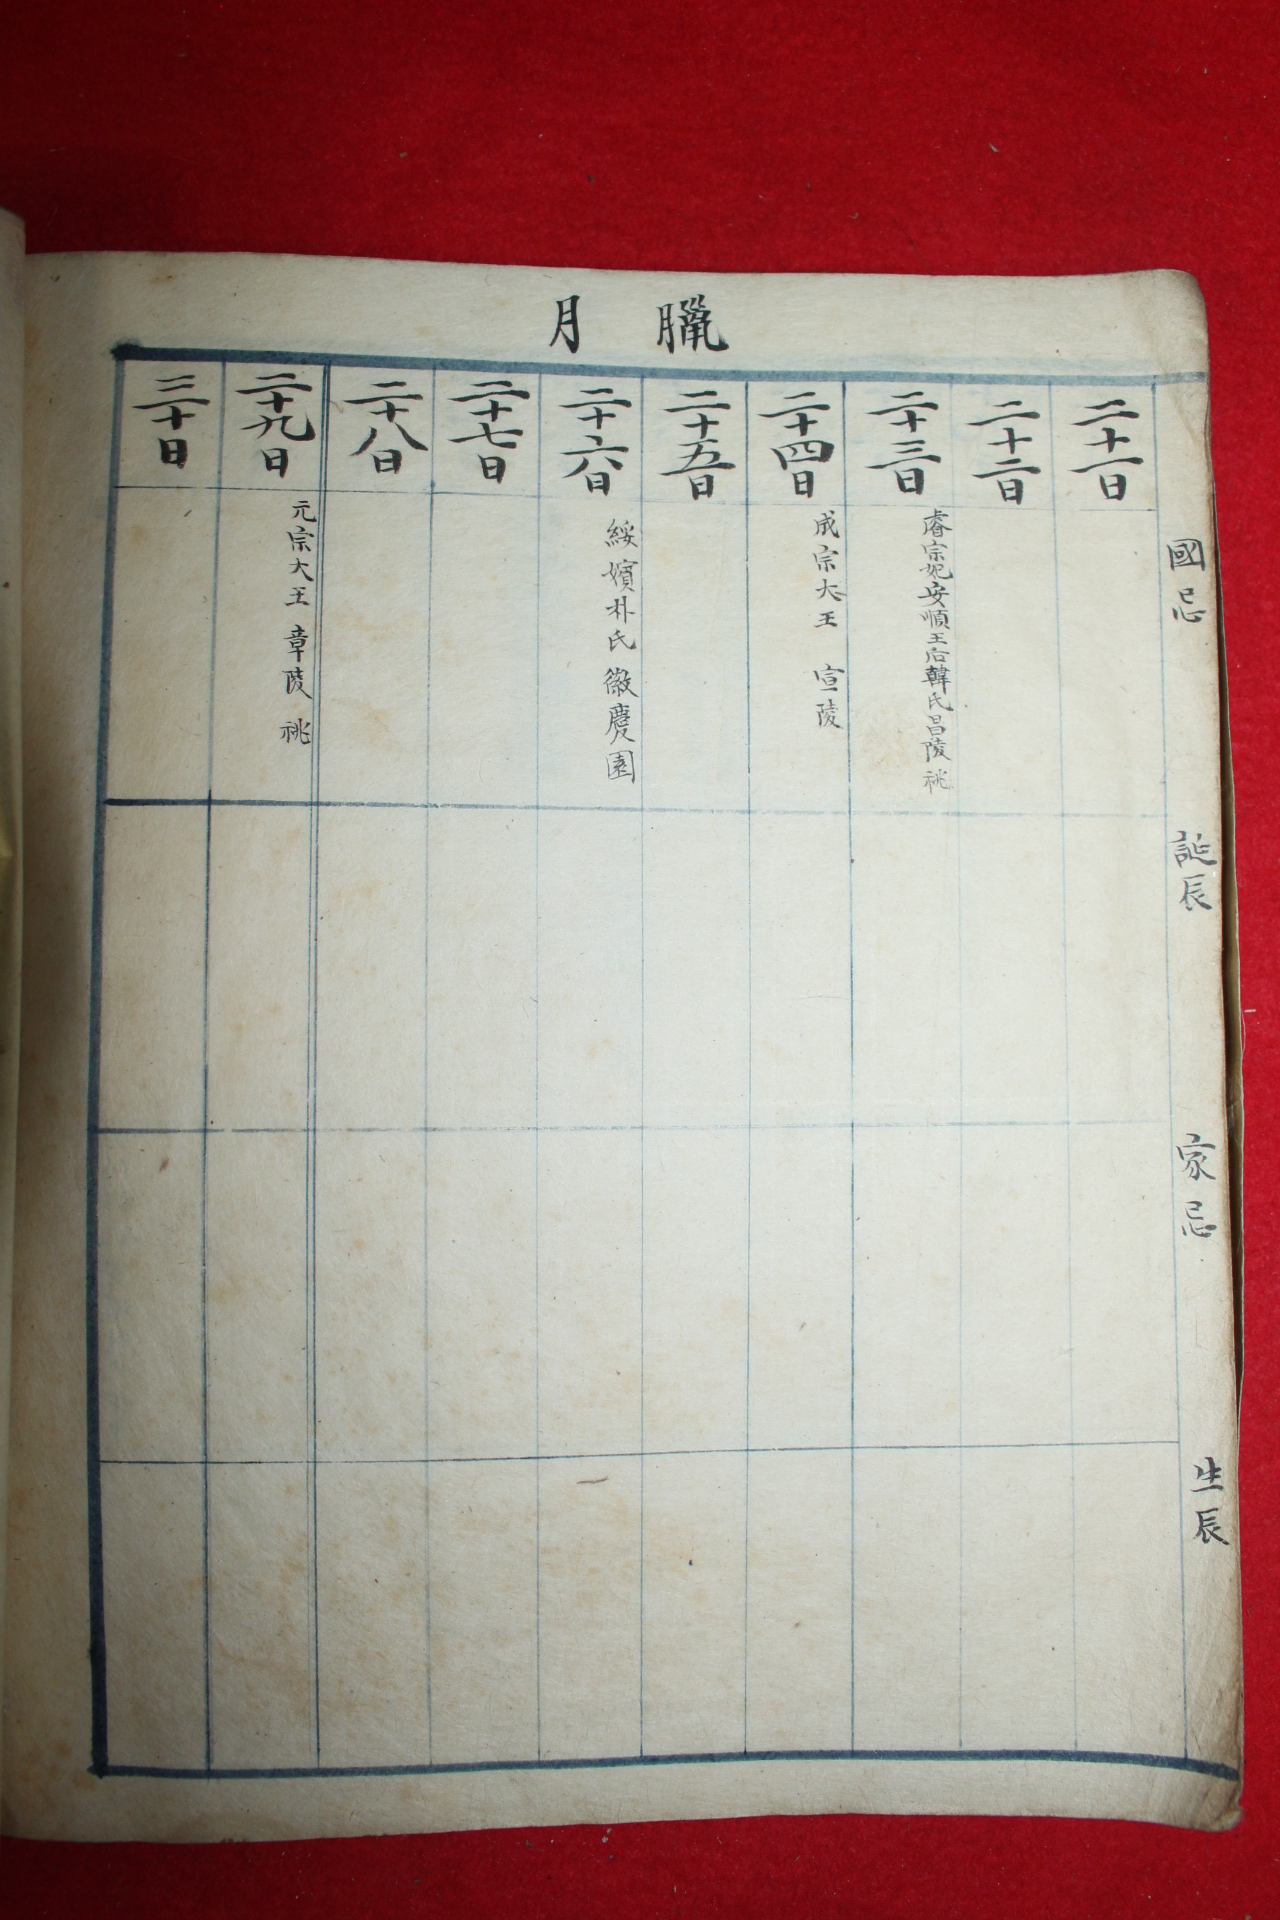 臘月
國忌
誕辰
家忌
生辰
二十一日
二十二日
二十三日
睿宗妃安順王后韓氏昌陵 祧
二十四日
成宗大王 宣陵
二十五日
二十六日
綏嬪朴氏 徽慶園
二十七日
二十八日
二十九日
元宗大王 章陵 祧
三十日